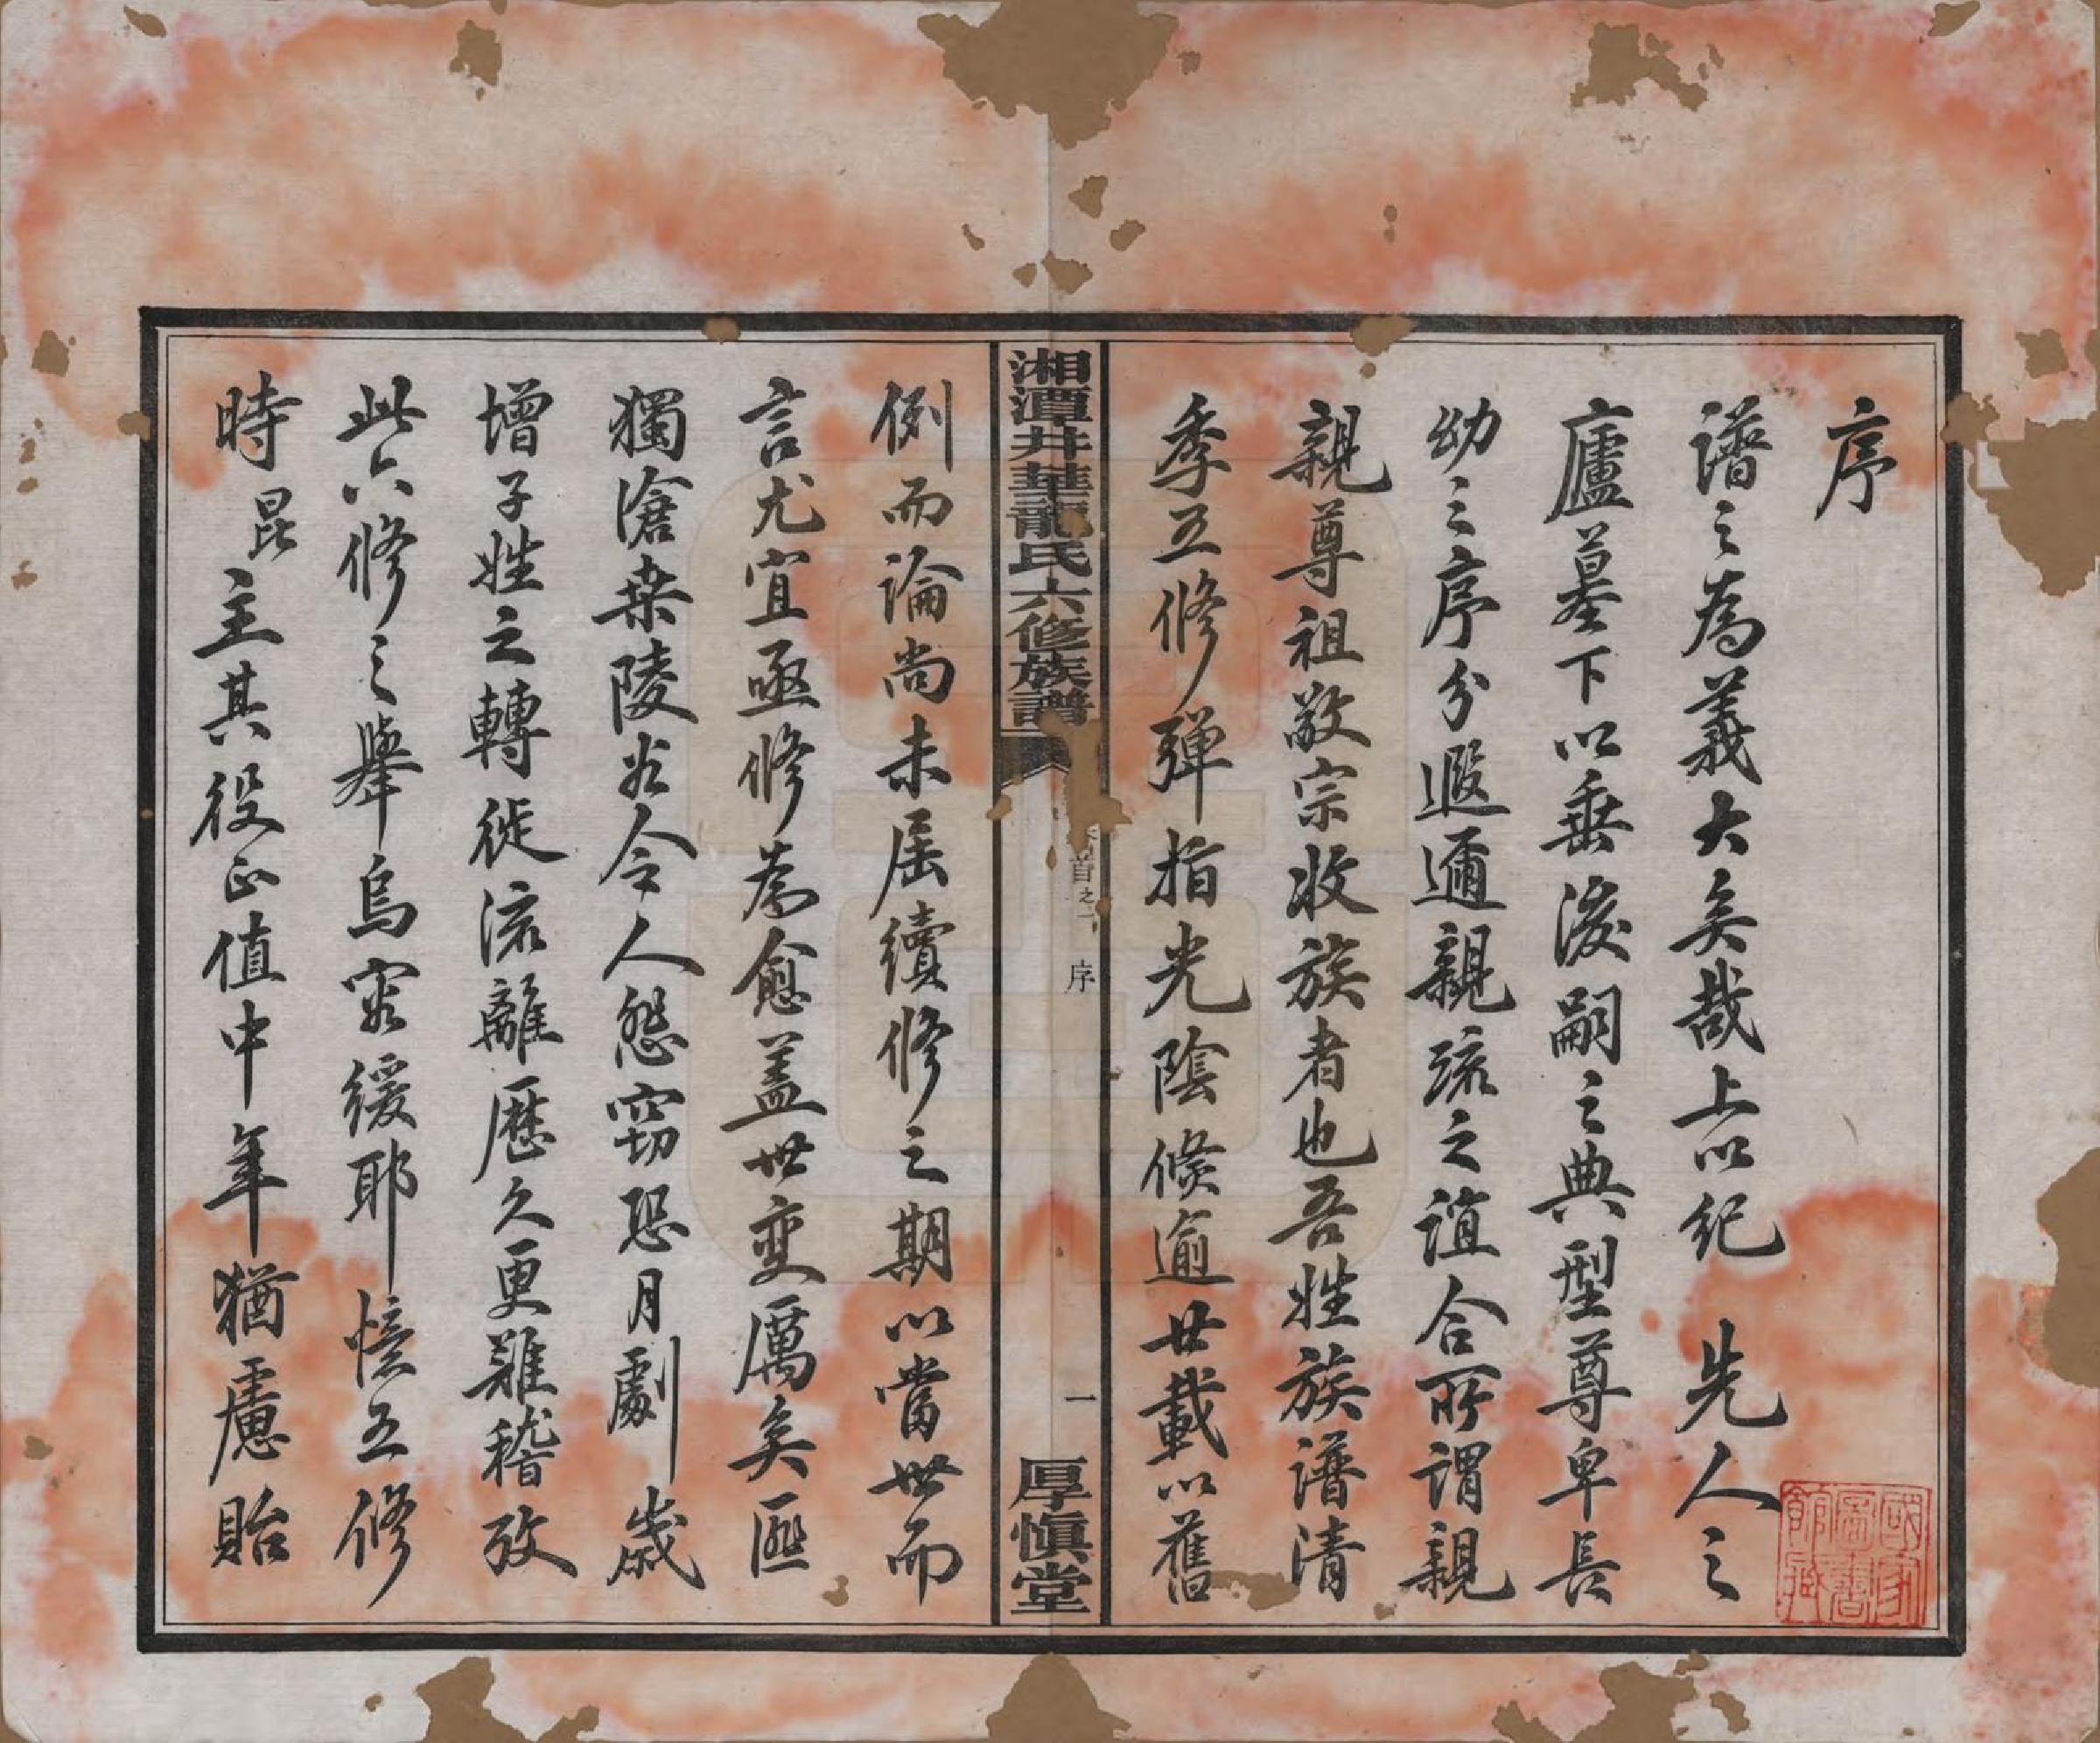 序
譜之為義大矣哉上以紀 先人之
廬墓下以垂後嗣之典型尊卑長
幼之序分遐邇親疏之誼合所謂親
親尊祖敬宗收族者也吾姓族譜清
季五修彈指光陰倏逾廿載以舊
湘潭井華龍氏六修族譜
首之 序
一
厚慎堂
例而論尚未屆續修之期以當世而
言尤宜亟修為愈蓋世變厲矣匪
獨滄桑陵谷今人怨竊恐月劇歲
增子姓之轉徙流離歷久更難稽攷
此六修之舉烏容緩耶憶五修
時昆主其役正值中年猶慮貽
國家圖書館藏